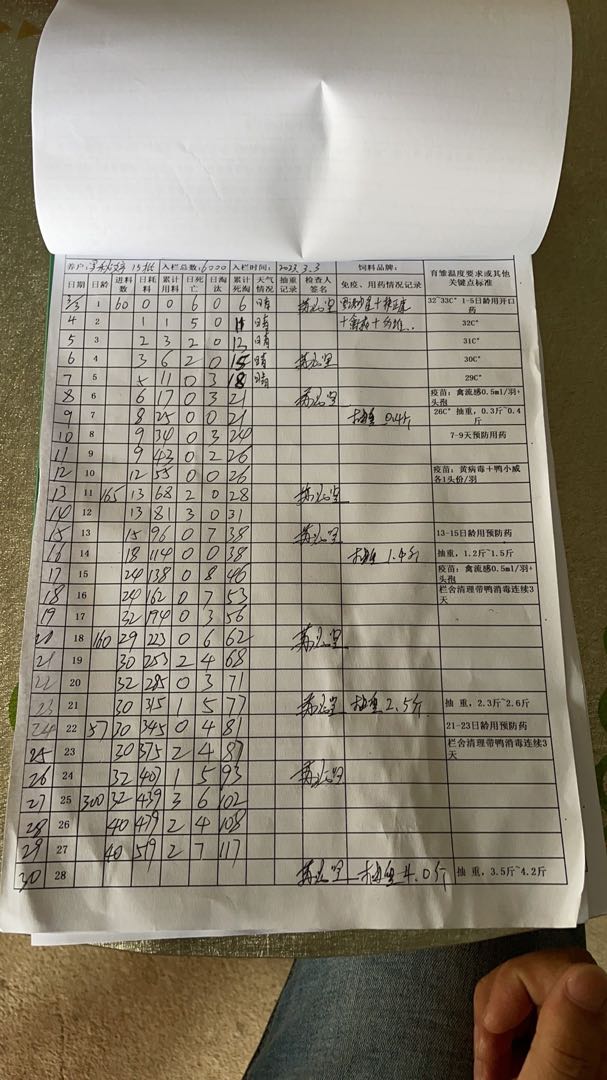 养户: 15批 入栏总数:6000 入栏时间: 2023.3.3 饲料品牌:
日期 日龄 进料数 日耗料 累计用料 日死亡 日淘汰 累计死淘 天气情况 抽重记录 检查人签名 免疫、用药情况记录 育雏温度要求或其他关键点标准
3/3 1 60 0 0 6 0 6 晴 32~33C° 1-5日龄用开口药
4 2 1 1 5 0 11 晴 32C°
5 3 2 3 2 0 13 晴 31C°
6 4 3 6 2 0 15 晴 30C°
7 5 5 11 0 3 18 晴 29C°
8 6 6 17 0 3 21 疫苗：禽流感0.5ml/羽+头孢
9 7 8 25 0 0 21 抽重 0.4斤 26C° 抽重，0.3斤~0.4斤
10 8 9 34 0 3 24 7-9天预防用药
11 9 9 43 0 2 26
12 10 12 55 0 0 26 疫苗：黄病毒+鸭小威各1头份/羽
13 11 165 13 68 2 0 28
14 12 13 81 3 0 31
15 13 15 96 0 7 38 13-15日龄用预防药
16 14 18 114 0 0 38 抽重 1.4斤 抽重，1.2斤~1.5斤
17 15 24 138 0 8 46 疫苗：禽流感0.5ml/羽+头孢
18 16 24 162 0 7 53 栏舍清理带鸭消毒连续3天
19 17 32 194 0 3 56
20 18 160 29 223 0 6 62
21 19 30 253 2 4 68
22 20 32 285 0 3 71
23 21 30 315 1 5 77 抽重 2.5斤 抽 重，2.3斤~2.6斤
24 22 57 30 345 0 4 81 21-23日龄用预防药
25 23 30 375 2 4 87 栏舍清理带鸭消毒连续3天
26 24 32 407 1 5 93
27 25 300 32 439 3 6 102
28 26 40 479 2 4 108
29 27 40 519 2 7 117
30 28 抽重 4.0斤 抽 重，3.5斤~4.2斤